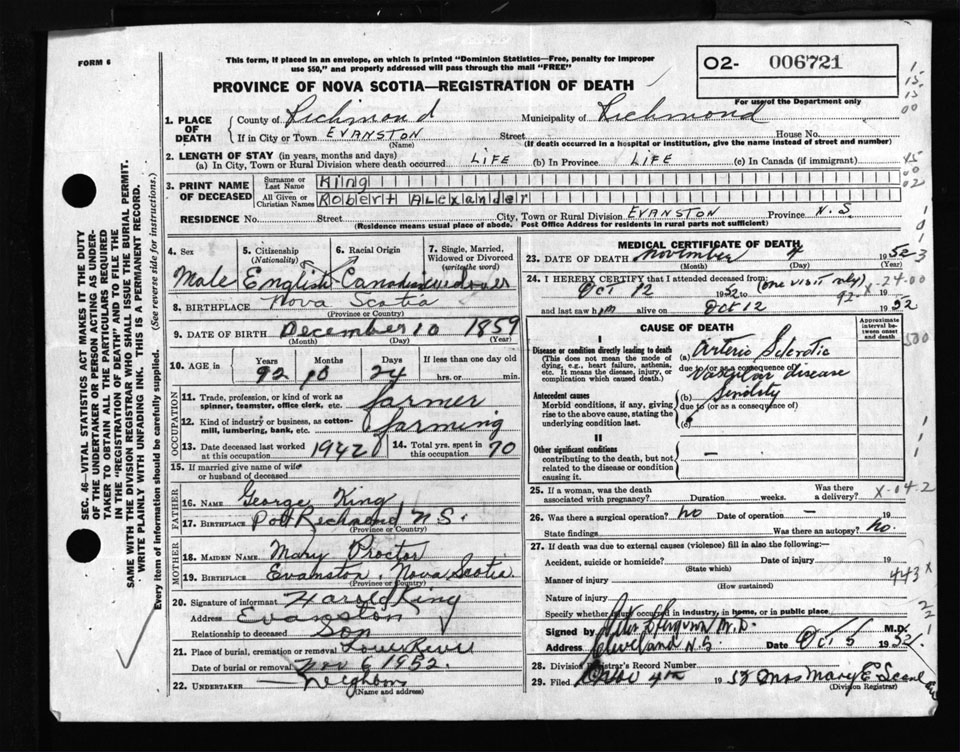 FORM 6
This form, if placed in an envelope, on which is printed "Dominion Statistics—Free, penalty for improper
use $50," and properly addressed will pass through the mail "FREE"
O2- 006721
For use of the Department only
PROVINCE OF NOVA SCOTIA—REGISTRATION OF DEATH
1. PLACE OF DEATH
County of Richmond Municipality of Richmond
If in City or Town EVANSTON Street House No.
(Name) (If death occurred in a hospital or institution, give the name instead of street and number)
2. LENGTH OF STAY (in years, months and days)
(a) In City, Town or Rural Division where death occurred LIFE (b) In Province LIFE (c) In Canada (if immigrant)
3. PRINT NAME OF DECEASED
Surname or Last Name King
All Given or Christian Names Robert Alexander
RESIDENCE No. Street City, Town or Rural Division EVANSTON Province N.S
(Residence means usual place of abode. Post Office Address for residents in rural parts not sufficient)
4. Sex Male
5. Citizenship (Nationality) English
6. Racial Origin Canadian
7. Single, Married, Widowed or Divorced (write the word) widower
8. BIRTHPLACE Nova Scotia
(Province or Country)
9. DATE OF BIRTH December 10 1859
(Month) (Day) (Year)
10. AGE in Years Months Days If less than one day old
92 10 24 hrs. or min.
OCCUPATION
11. Trade, profession, or kind of work as spinner, teamster, office clerk, etc. farmer
12. Kind of industry or business, as cotton-mill, lumbering, bank, etc. farming
13. Date deceased last worked at this occupation 1942 14. Total yrs. spent in this occupation 70
15. If married give name of wife or husband of deceased
FATHER
16. NAME George King
17. BIRTHPLACE Port Richmond N S.
(Province or Country)
MOTHER
18. MAIDEN NAME Mary Proctor
19. BIRTHPLACE Evanston, Nova Scotia.
(Province or Country)
20. Signature of informant Harold King
Address Evanston
Relationship to deceased Son
21. Place of burial, cremation or removal
Date of burial or removal Nov 6 1952.
22. UNDERTAKER Neighbors
(Name and address)
MEDICAL CERTIFICATE OF DEATH
23. DATE OF DEATH November 4 1952
(Month) (Day) (Year)
24. I HEREBY CERTIFY that I attended deceased from: (one visit only)
Oct 12 1952 to 19
and last saw h im alive on Oct 12 1952
CAUSE OF DEATH
Approximate interval between onset and death
I
Disease or condition directly leading to death
(This does not mean the mode of dying, e.g., heart failure, asthenia, etc. It means the disease, injury, or complication which caused death.)
(a) Arterio Sclerotic
due to (or as a consequence of)
Vascular disease
Antecedent causes
Morbid conditions, if any, giving rise to the above cause, stating the underlying condition last.
(b) Senility
due to (or as a consequence of)
(c)
II
Other significant conditions
contributing to the death, but not related to the disease or condition causing it.
—
25. If a woman, was the death associated with pregnancy? Duration weeks. Was there a delivery?
X-04-2
26. Was there a surgical operation? No Date of operation — 19
State findings Was there an autopsy? No.
27. If death was due to external causes (violence) fill in also the following:
Accident, suicide or homicide? Date of injury 19
(State which)
Manner of injury
(How sustained)
443 X
Nature of injury
Specify whether injury occurred in industry, in home, or in public place
Signed by M.D.
Address Cleveland N.S. Date Oct 5 1952
28. Division Registrar's Record Number
29. Filed Nov 4th 1952 Mrs Mary E
(Division Registrar)
SEC. 46—VITAL STATISTICS ACT MAKES IT THE DUTY
OF THE UNDERTAKER OR PERSON ACTING AS UNDER-
TAKER TO OBTAIN ALL THE PARTICULARS REQUIRED
IN THE "REGISTRATION OF DEATH" AND TO FILE THE
SAME WITH THE DIVISION REGISTRAR WHO SHALL ISSUE THE BURIAL PERMIT.
WRITE PLAINLY WITH UNFADING INK. THIS IS A PERMANENT RECORD.
Every item of Information should be carefully supplied. (See reverse side for instructions.)